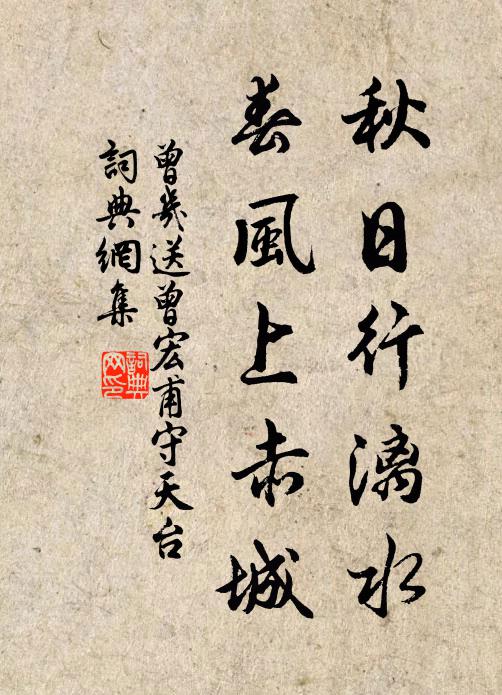 秋日行漓水
春風上赤城
曾幾送曾宏甫守天台
詞典網集
詞典網印